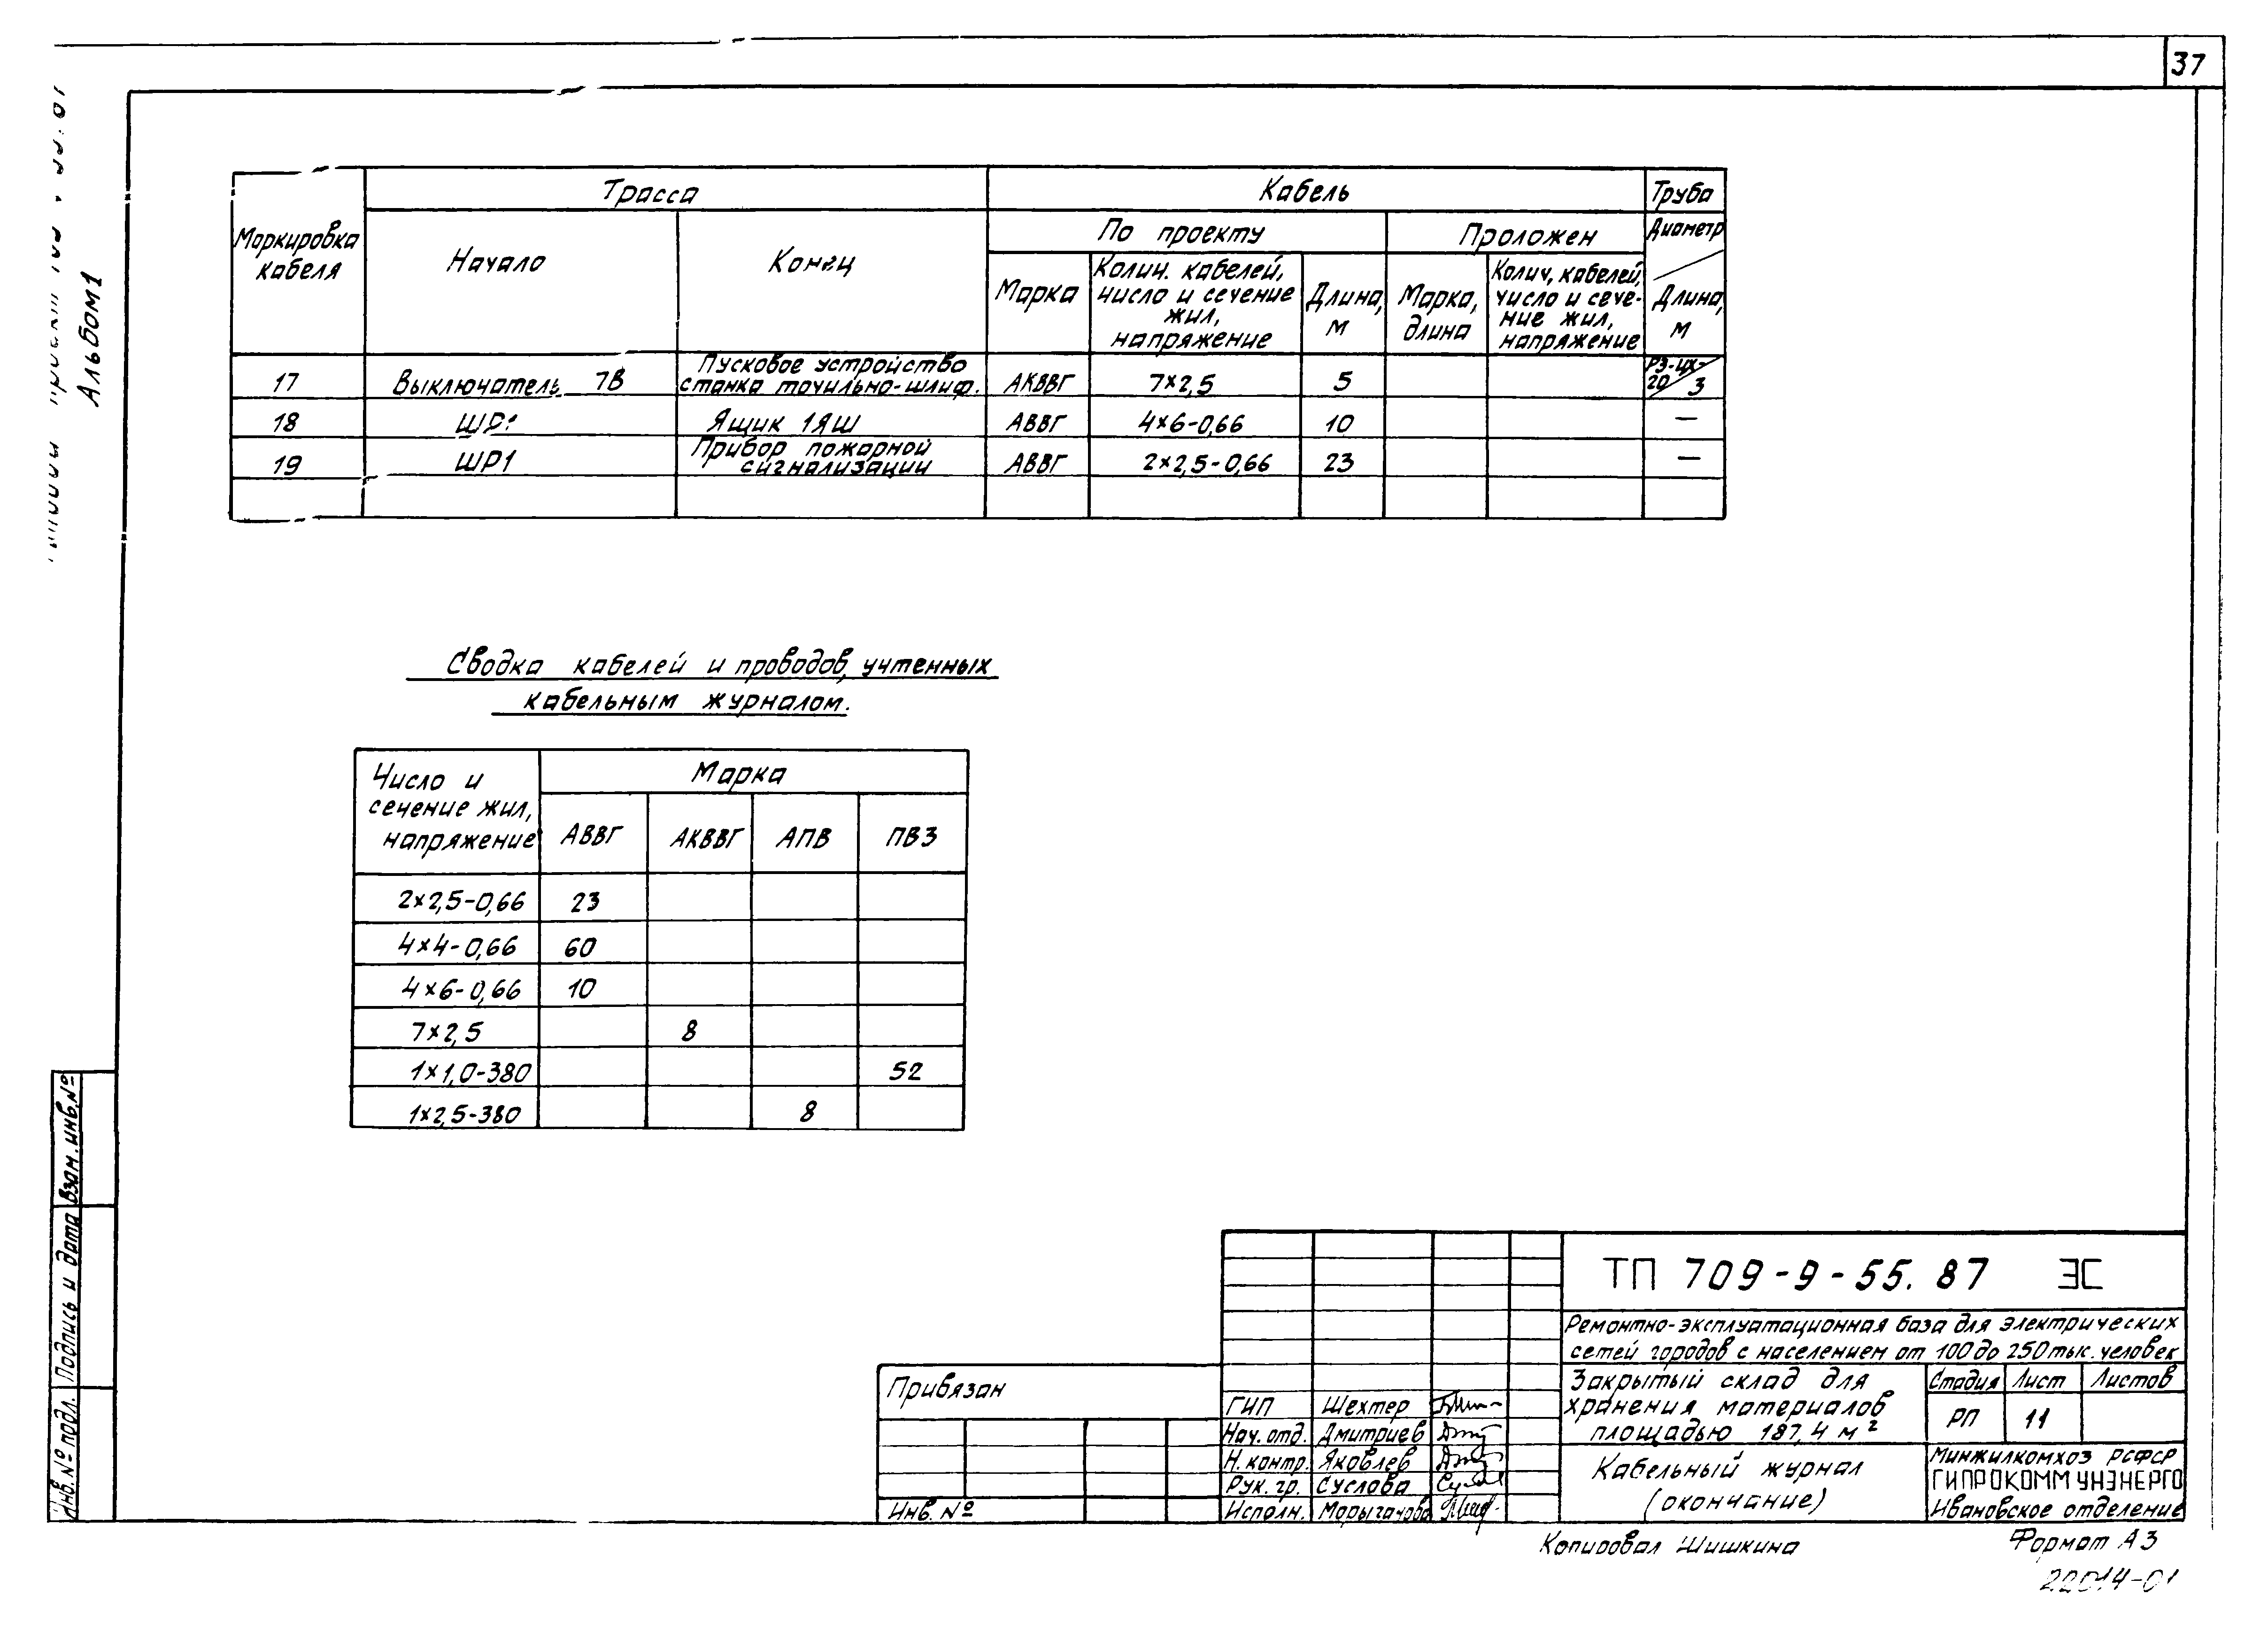 37
Альбом1
Маркировка кабеля
Трасса
Кабель
Труба
Начало
Конец
По проекту
Проложен
Диаметр
Длина, м
Марка
Колич. кабелей, число и сечение жил, напряжение
Длина, м
Марка, длина
Колич, кабелей, число и сече-ние жил, напряжение
17 Выключатель 7В Пусковое устройство станка точильно-шлиф. АКВВГ 7×2,5 5 РЗ-ЦХ-20/3
18 ШР1 Ящик 1ЯШ АВВГ 4×6-0,66 10 —
19 ШР1 Прибор пожарной сигнализации АВВГ 2×2,5-0,66 23 —
Сводка кабелей и проводов, учтенных
кабельным журналом.
Число и сечение жил, напряжение
Марка
АВВГ АКВВГ АПВ ПВ3
2×2,5-0,66 23
4×4-0,66 60
4×6-0,66 10
7×2,5 8
1×1,0-380 52
1×2,5-380 8
Взам. инв. №
Подпись и дата
Инв. № подл.
Привязан
Инв. №
ГИП Шехтер
Нач. отд. Дмитриев
Н. контр. Яковлев
Рук. гр. Суслова
Исполн. Морыганова
ТП 709-9-55.87 ЭС
Ремонтно-эксплуатационная база для электрических
сетей городов с населением от 100 до 250 тыс. человек
Закрытый склад для
хранения материалов
площадью 187,4 м²
Стадия Лист Листов
РП 11
Кабельный журнал
(окончание)
Минжилкомхоз РСФСР
ГИПРОКОММУНЭНЕРГО
Ивановское отделение
Копировал Шишкина
Формат А3
22014-01